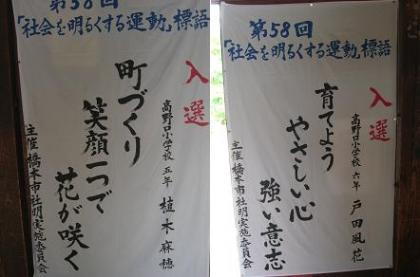 第58回
「社会を明るくする運動」標語
入選
高野口小学校 五年 植木麻穂
町づくり
笑顔一つで
花が咲く
主催 橋本市社明実施委員会
第58回
「社会を明るくする運動」標語
入選
高野口小学校 六年 戸田風花
育てよう
やさしい心
強い意志
主催 橋本市社明実施委員会